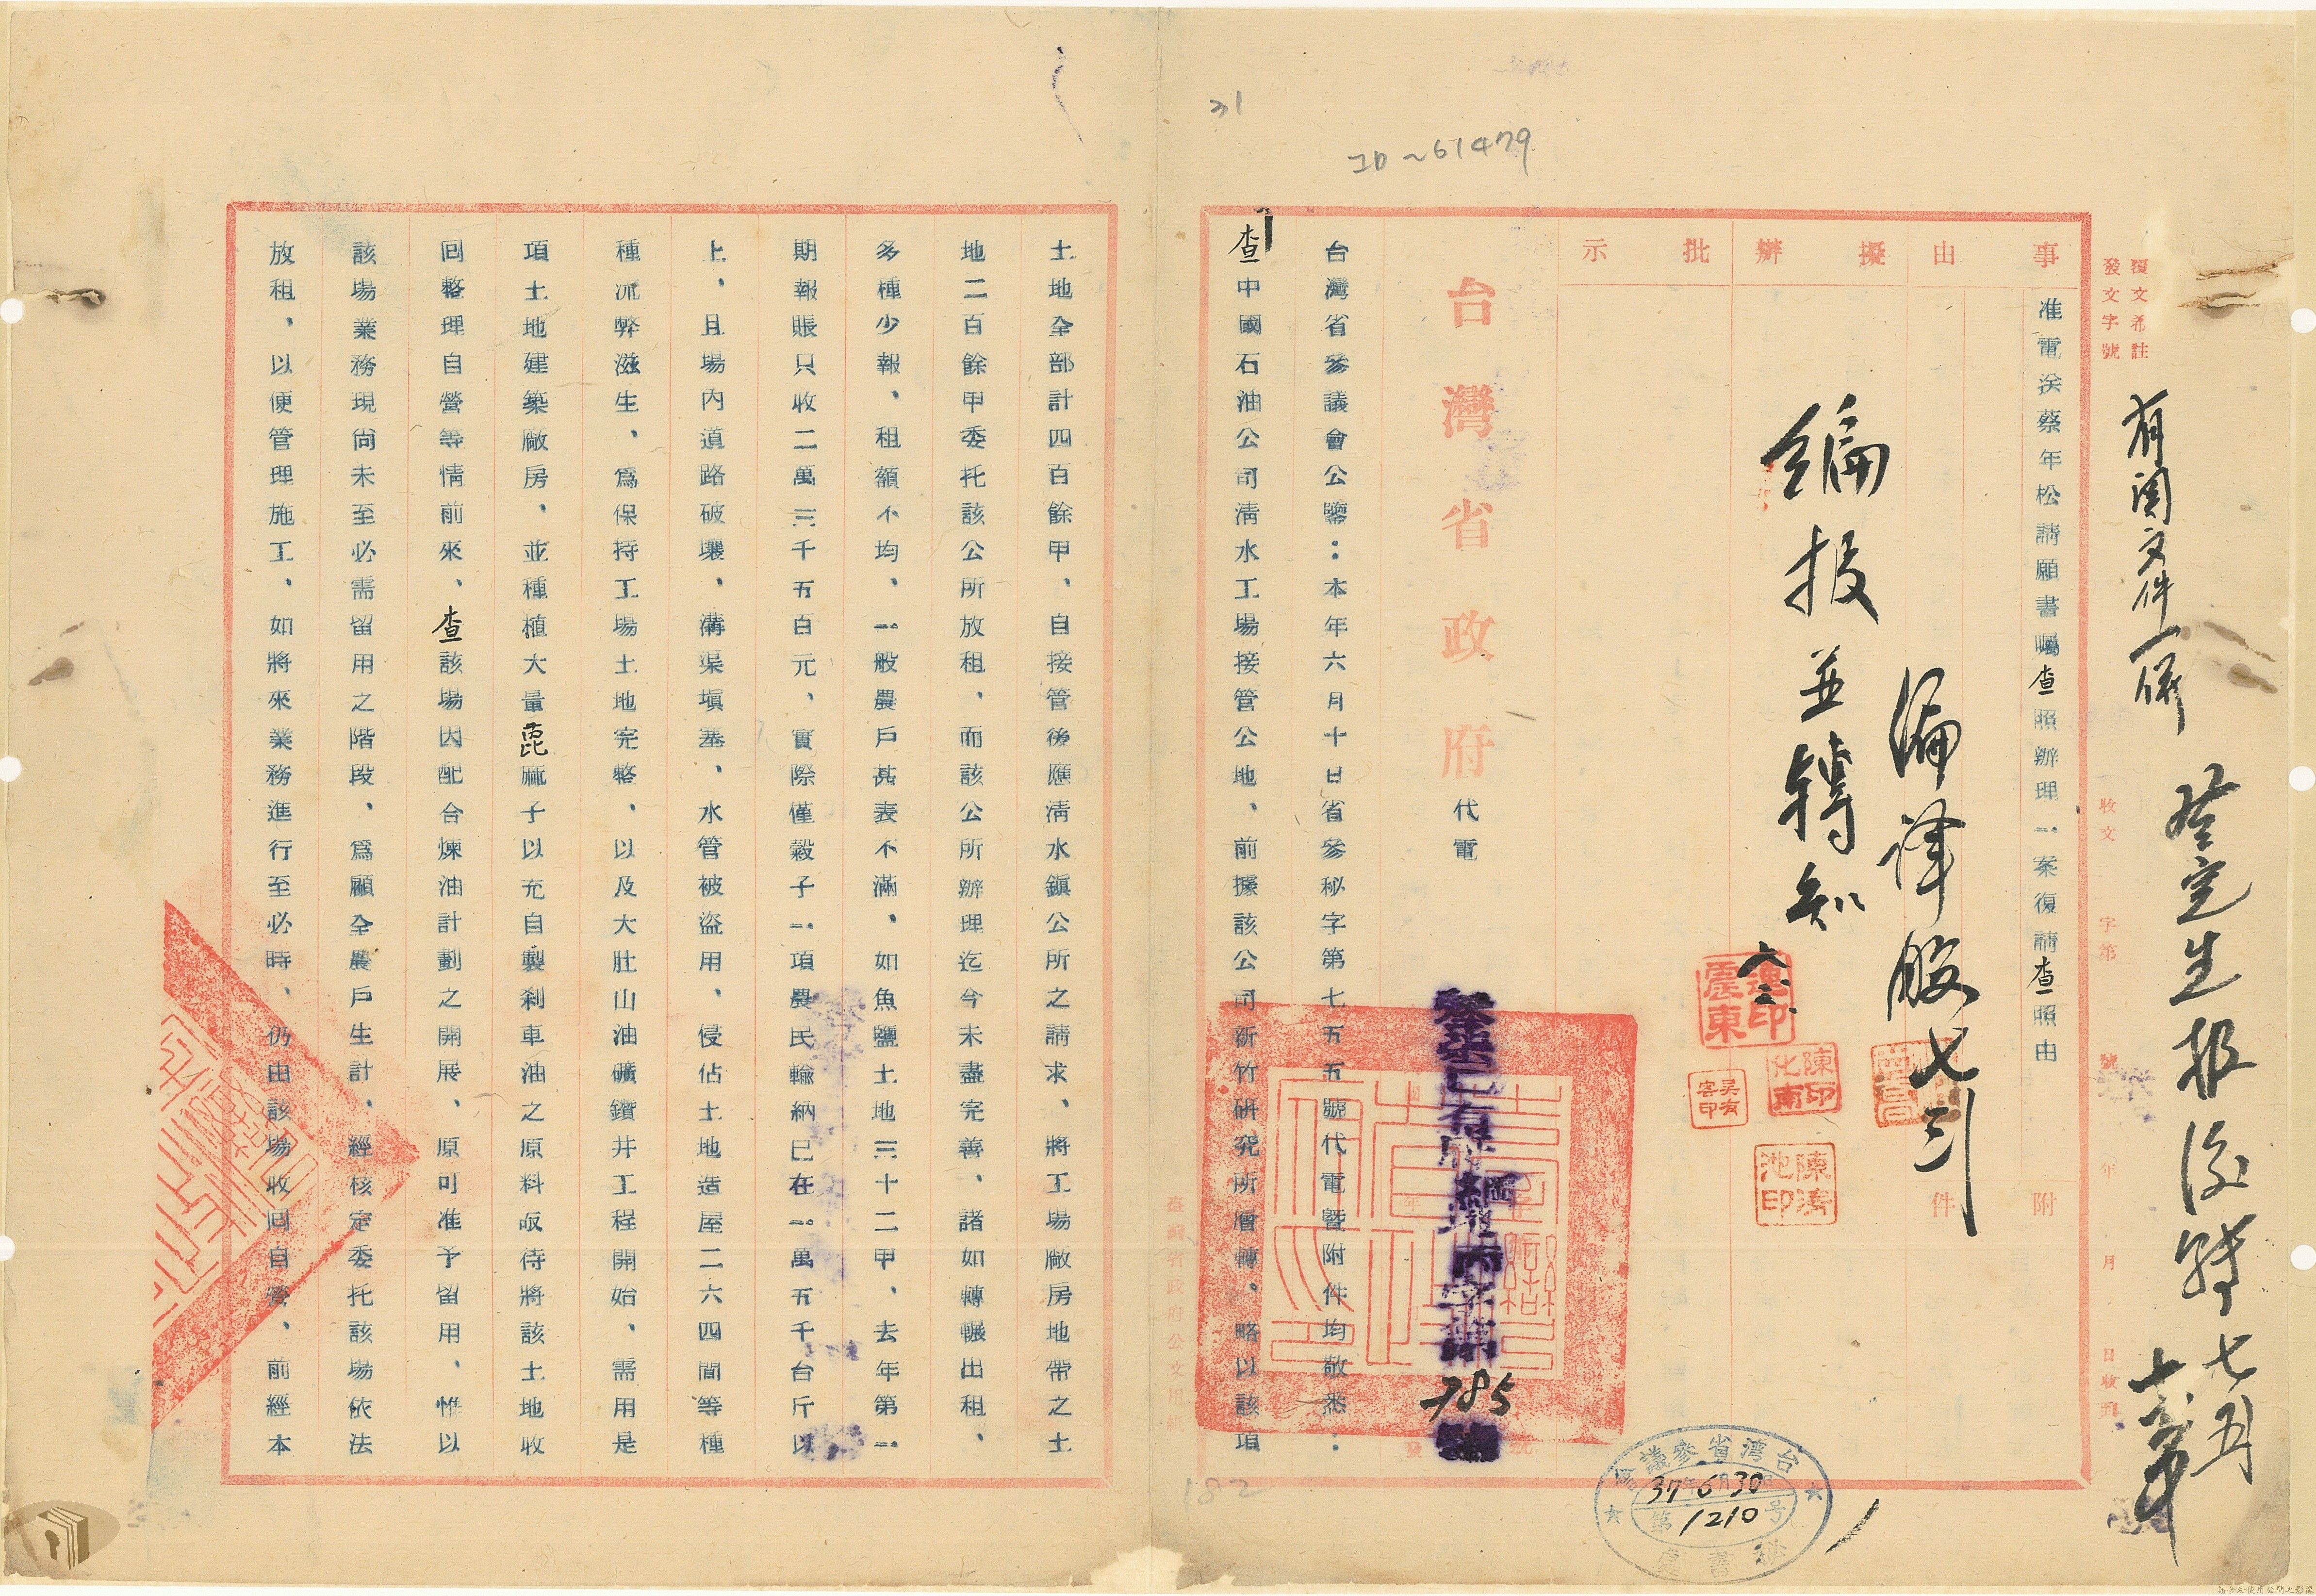 31
ID~61479
覆文希註
發文字號
有関文件一併
收文 字第 號 年 月 日收到
事由
准電送蔡年松請願書囑查照辦理一案復請查照由
附件
擬辦
編報並轉知
批示
台灣省政府
代電
785
台灣省參議會公鑒：本年六月十日省參秘字第七五五號代電暨附件均敬悉：
查中國石油公司清水工場接管公地、前據該公司新竹研究所層轉。略以該項
臺灣省政府公文用紙
182
台灣省參議會
37年6月30日
第1210号
秘書處
陳印
陳清池印
土地全部計四百餘甲、自接管後應清水鎮公所之請求、將工場廠房地帶之土
地二百餘甲委托該公所放租、而該公所辦理迄今未盡完善、諸如轉輾出租、
多種少報、租額不均、一般農戶甚表不滿、如魚鹽土地三十二甲、去年第一
期報賬只收二萬三千五百元、實際僅穀子一項農民輸納已在一萬五千台斤以
上、且場內道路破壞、溝渠塡塞、水管被盜用、侵佔土地造屋二六四間等種
種流弊滋生、爲保持工場土地完整、以及大肚山油礦鑽井工程開始、需用是
項土地建築廠房、並種植大量蓖蔴子以充自製刹車油之原料亟待將該土地收
回整理自營等情前來、查該場因配合煉油計劃之開展、原可准予留用、惟以
該場業務現尙未至必需留用之階段、爲顧全農戶生計、經核定委托該場依法
放租、以便管理施工、如將來業務進行至必時、仍由該場收回自營、前經本